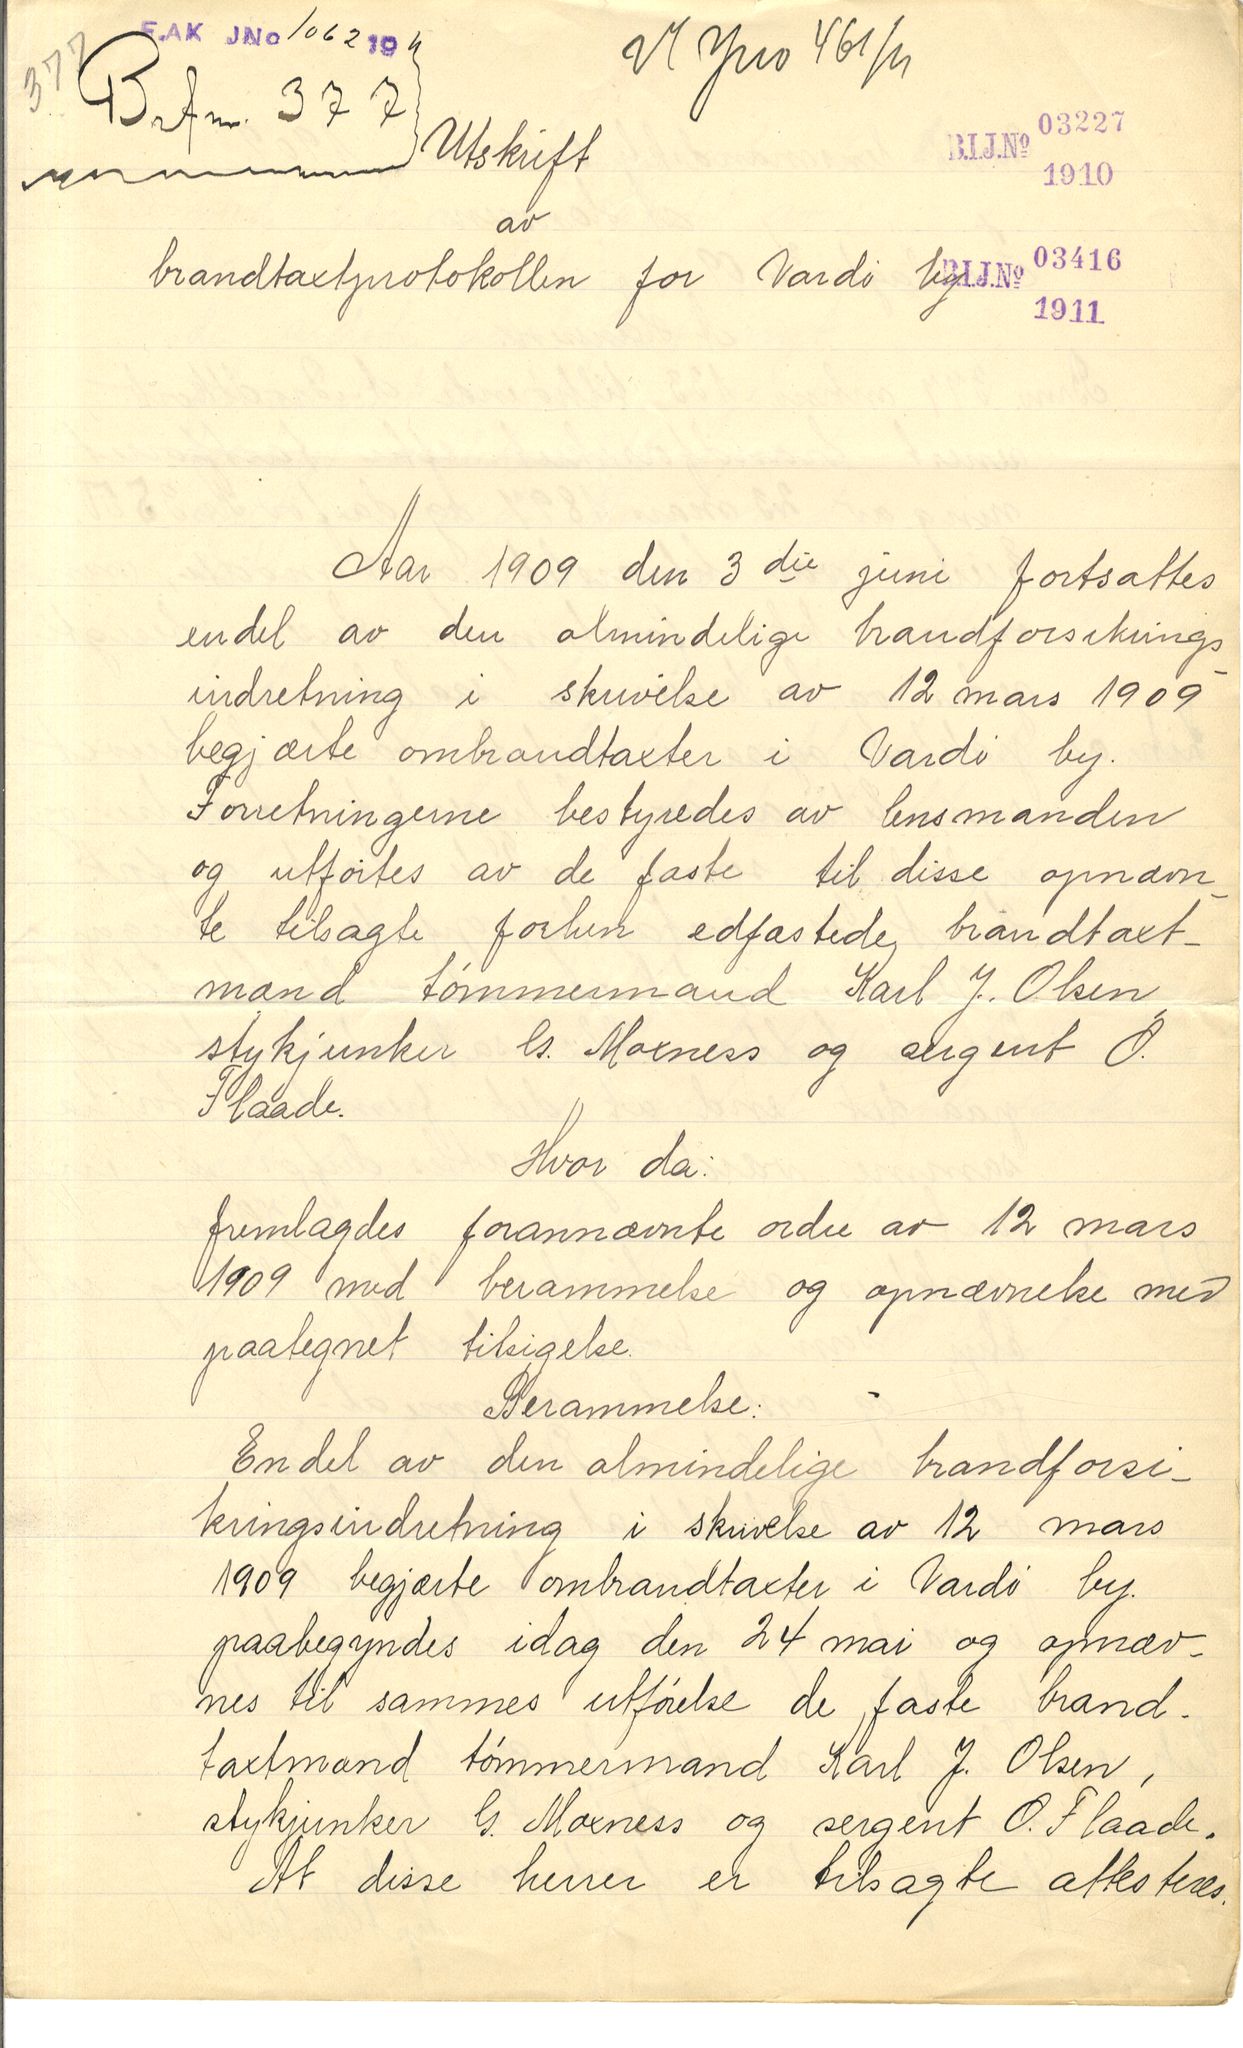 F.AK JNo 1062 19
377
Brfm. 377
Jno 461/11
Utskrift
av
brandtaxtprotokollen for Vardö by
B.I.J.No 03227
1910
B.I.J.No 03416
1911
Aar 1909 den 3 die juni fortsattes
endel av den almindelige brandforsikrings
indretning i skrivelse av 12 mars 1909
begjærte ombrandtaxter i Vardö by.
Forretningerne bestyredes av lensmanden
og utførtes av de faste til disse opnævn-
te tilsagte forhen edfæstede brandtaxt-
mænd tömmermand Karl J. Olsen,
stykjunker G. Moxness og sergent O.
Flaade.
Hvor da:
fremlagdes forannævnte ordre av 12 mars
1909 med berammelse og opnævnelse med
paategnet tilsigelse.
Berammelse:
Endel av den almindelige brandforsi-
kringsindretning i skrivelse av 12 mars
1909 begjærte ombrandtaxter i Vardö by.
paabegyndes idag den 24 mai og opnæv-
nes til sammes utførelse de faste brand-
taxtmænd tömmermand Karl J. Olsen,
stykjunker G. Moxness og sergent O. Flaade.
At disse herrer er tilsagte attesteres.